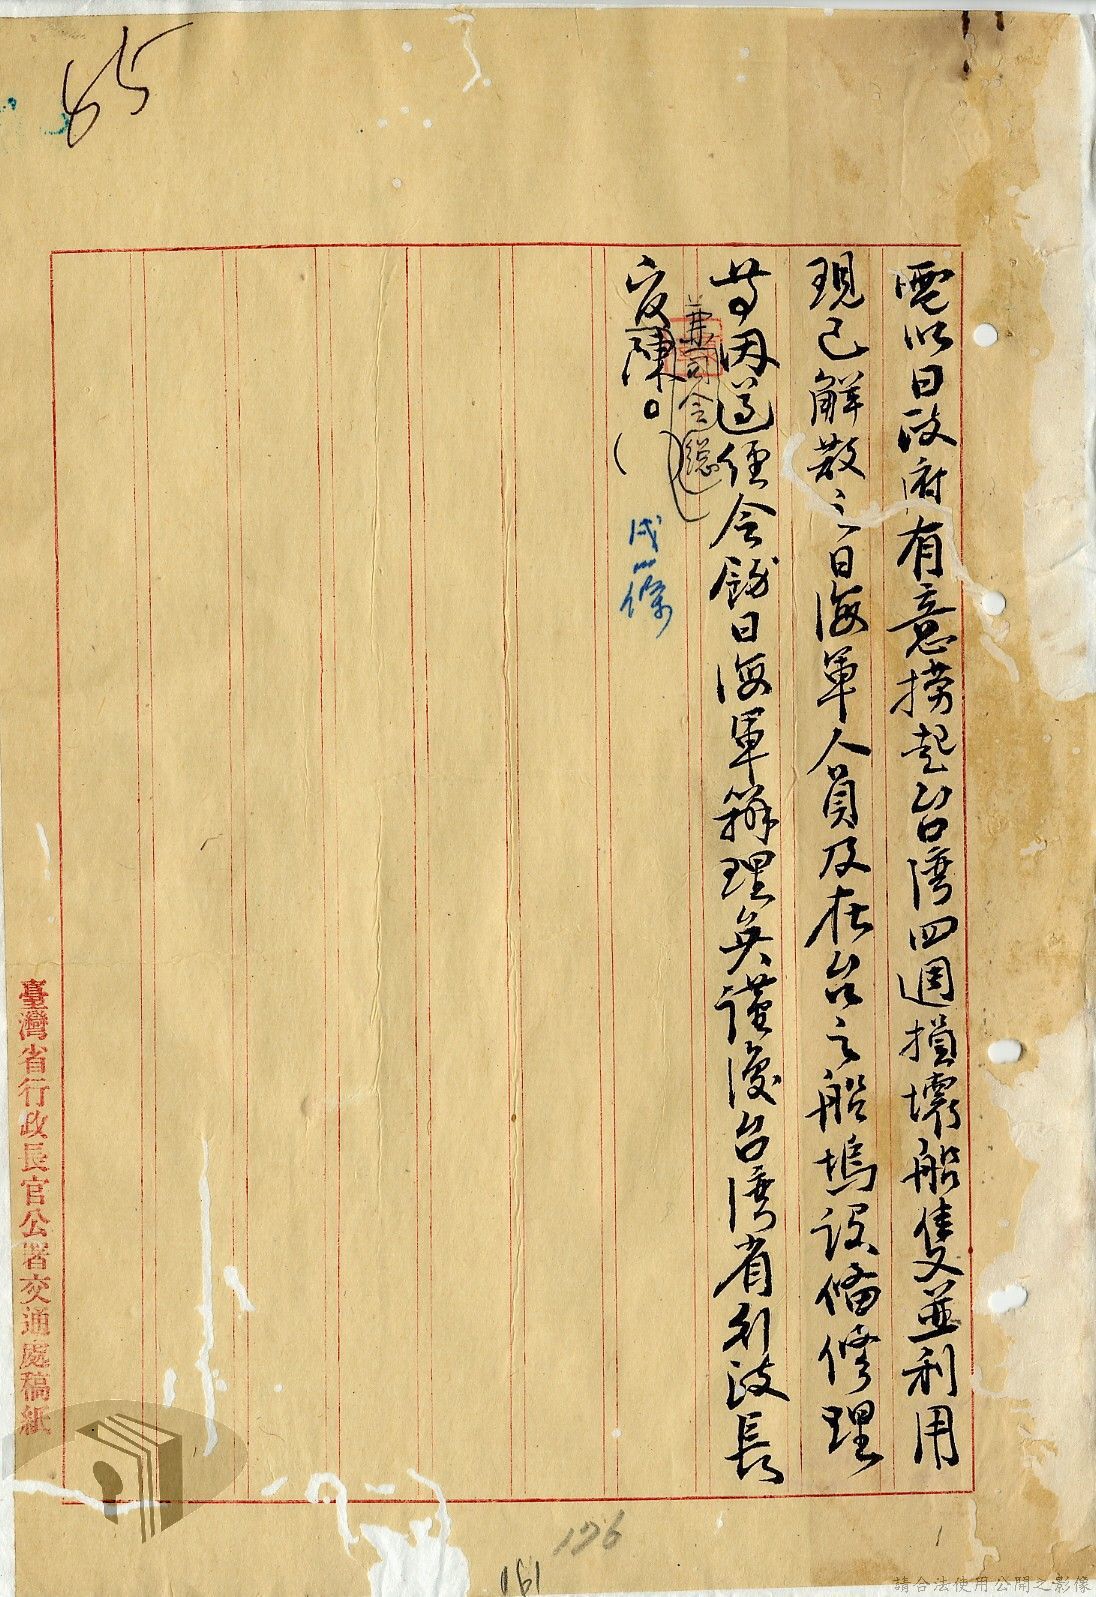 65
電以日政府有意撈起台湾四週損壞船隻並利用
現已解散之日海軍人員及在台之船塢設備修理
等因遵經令飭日海軍辦理矣謹復台湾省行政長
兼司令總
官陳。()
戌 條
臺灣省行政長官公署交通處稿紙
176
161
請合法使用公開之影像